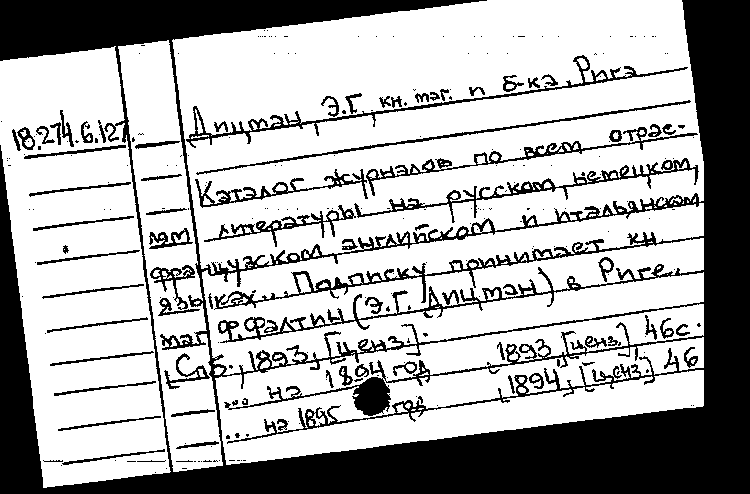 18.274.6.127.
Дицман, Э.Г., кн. маг. и б-ка, Рига
Каталог журналов по всем отрас-
лям литературы на русском, немецком,
французском, английском и итальянском
языках... Подписку принимает кн.
маг. Ф. Фалтин (Э.Г. Дицман) в Риге.
Спб., 1893, [ценз.].
... на 1894 год [1893, [ценз.] 46 с.
... на 1895 год [1894, [ценз.] 46